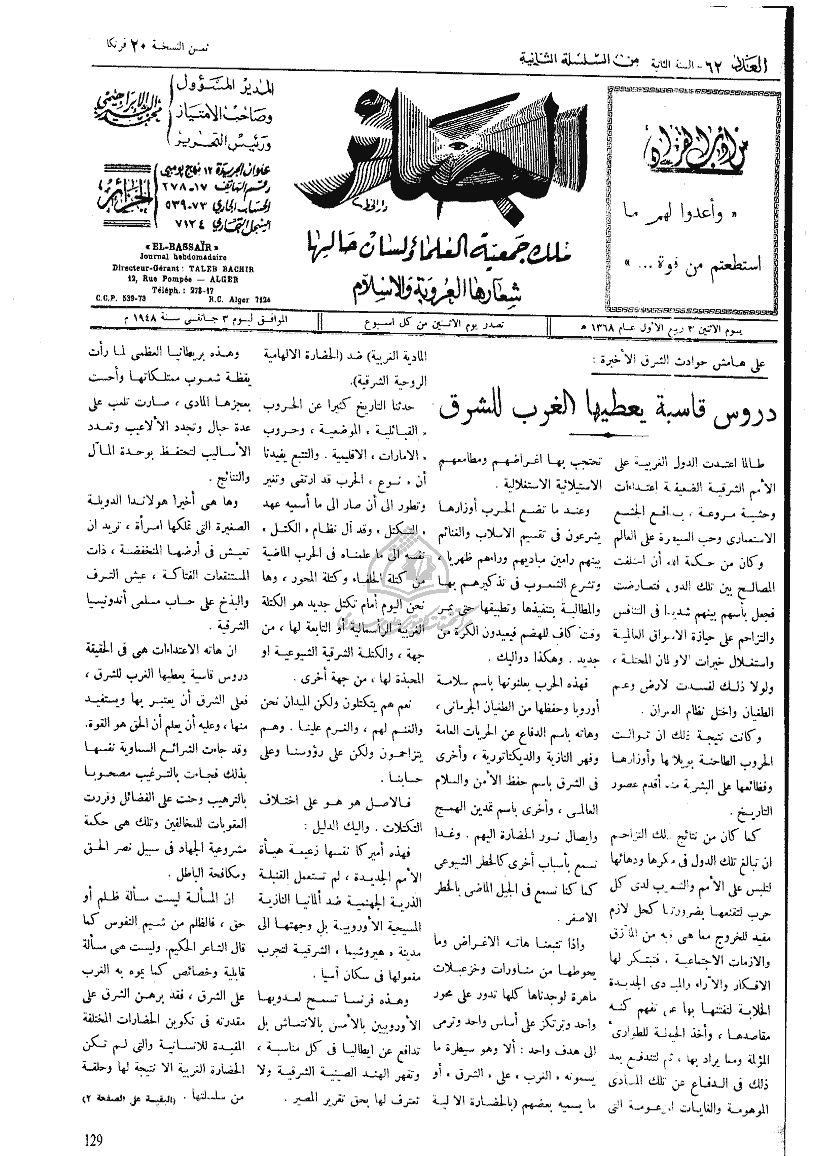 العدد ٦٢ - السنة الثانية من السلسلة الثانية
ثمن النسخة ٢٠ فرنكا
« وأعدوا لهم ما
استطعتم من قوة ... »
البصائر
لسان حالها
شعارها العروبة والاسلام
المدير المسؤول
وصاحب الامتياز
ورئيس التحرير
عنوان الجريدة ١٢ نهج بومبي
رقم الهاتف ١٧-٢٧٨
الحساب الجاري ٧٣-٥٣٩
السجل التجاري ٧١٢٤
الجزائر
« EL-BASSAÏR »
Journal hebdomadaire
Directeur-Gérant : TALEB BACHIR
12, Rue Pompée — ALGER
Téléph. : 278-17
C.C.P. 539-73 R.C. Alger 7124
يوم الاثنين ٣ ربيع الأول عام ١٣٦٨ ه
تصدر يوم الاثنين من كل اسبوع
الموافق ليوم ٣ جانفي سنة ١٩٤٨ م
على هامش حوادث الشرق الأخيرة :
دروس قاسية يعطيها الغرب للشرق
طالما اعتدت الدول الغربية على
الأمم الشرقية الضعيفة اعتداءات
وحشية مروعة ، بدافع الجشع
الاستعماري وحب السيطرة على العالم
وكان من حكمة الله أن اختلفت
المصالح بين تلك الدول فتعارضت
فجعل بأسهم بينهم شديدا في التنافس
والتزاحم على حيازة الاسواق العالمية
واستغلال خيرات الاوطان المحتلة ،
ولولا ذلك لفسدت الارض وعم
الطغيان واختل نظام العمران .
وكانت نتيجة ذلك ان توالت
الحروب الطاحنة بويلاتها وأوزارها
وفظائعها على البشرية منذ أقدم عصور
التاريخ .
كما كان من نتائج ذلك التزاحم
ان تبالغ تلك الدول في مكرها ودهائها
لتلبس على الأمم والشعوب لدى كل
حرب لتقنعها بضرورتها كحل لازم
مفيد للخروج مما هي فيه من المآزق
والازمات الاجتماعية . فتبتكر لها
الافكار والآراء والمبادي الجديدة
الخلابة لتفتنها بها عن تفهم كنه
مقاصدها ، وأخذ الحيطة للطوارئ
المؤلمة ومما يراد بها ، ثم لتندفع بعد
ذلك في الدفاع عن تلك المبادى
الموهومة والغايات المزعومة التي
تحتجب بها اغراضهم ومطامعهم
الاستيلائية الاستغلالية .
وعند ما تضع الحرب أوزارها
يشرعون في تقسيم الاسلاب والغنائم
بينهم رامين مباديهم وراءهم ظهريا ،
وتشرع الشعوب في تذكيرهم بها
والمطالبة بتنفيذها وتطبيقها حتى يمر
وقت كاف للهضم فيعيدون الكرة من
جديد . وهكذا دواليك .
فهذه الحرب يعلنونها باسم سلامة
أوروبا وحفظها من الطغيان الجرماني ،
وهاته باسم الدفاع عن الحريات العامة
وقهر النازية والديكتاتورية ، وأخرى
في الشرق باسم حفظ الأمن والسلام
العالمي ، وأخرى باسم تمدين الهمج
وايصال نور الحضارة اليهم . وغدا
نسمع بأسباب أخرى كالخطر الشيوعي
كما كنا نسمع في الجيل الماضي بالخطر
الاصفر .
واذا تتبعنا هاته الاغراض وما
يحوطها من مناورات وخزعبلات
ماهرة لوجدناها كلها تدور على محور
واحد وترتكز على أساس واحد وترمى
الى هدف واحد : ألا وهو سيطرة ما
يسمونه « الغرب » على « الشرق » أو
ما يسميه بعضهم (بالحضارة الآلية
المادية الغربية) ضد (الحضارة الالهامية
الروحية الشرقية).
حدثنا التاريخ كثيرا عن الحروب
« القبائلية » الموضعية ، وحروب
« الامارات » الاقليمية . والتتبع يفيدنا
أن « نوع » الحرب قد ارتقى وتغير
وتطور الى أن صار الى ما أسميه عهد
« التكتل » وقد آل نظام « الكتل »
نفسه الى ما علمناه في الحرب الماضية
من كتلة الحلفاء وكتلة المحور ، وها
نحن اليوم أمام تكتل جديد هو الكتلة
الغربية الرأسمالية أو التابعة لها ، من
جهة ، والكتلة الشرقية الشيوعية او
المحبذة لها ، من جهة أخرى .
نعم هم يتكتلون ولكن الميدان نحن
والغنم لهم ، والغرم علينا . وهم
يتزاحمون ولكن على رؤوسنا وعلى
حسابنا .
فالاصل هو هو على اختلاف
التكتلات . واليك الدليل :
فهذه أميركا نفسها زعيمة هيأة
الأمم الجديدة ، لم تستعمل القنبلة
الذرية الجهنمية ضد ألمانيا النازية
المسيحية الأوروبية بل وجهتها الى
مدينة « هيروشيما » الشرقية لتجرب
مفعولها في سكان آسيا .
وهذه فرنسا تسمح لعدوها
الأوروبيين بالأمس بالانتعاش بل
تدافع عن إيطاليا في كل مناسبة ،
وتقهر الهند الصينية الشرقية ولا
تعترف لها بحق تقرير المصير .
وهذه بريطانيا العظمى لما رأت
يقظة شعوب ممتلكاتها وأحست
بعجزها المادى ، صارت تلعب على
عدة حبال وتجدد الألاعيب وتعدد
الأساليب لتحتفظ بوحدة المآل
والنتائج .
وها هي أخيرا هولاندا الدويلة
الصغيرة التي تملكها امرأة ، تريد ان
تعيش في أرضها المنخفضة ، ذات
المستنقعات الفتاكة ، عيش الترف
والبذخ على حساب مسلمى أندونيسيا
الشرقية .
ان هاته الاعتداءات هي في الحقيقة
دروس قاسية يعطيها الغرب للشرق
فعلى الشرق أن يعتبر بها ويستفيد
منها ، وعليه أن يعلم أن الحق هو القوة.
وقد جاءت الشرائع السماوية نفسها
بذلك فجاءت بالترغيب مصحوبا
بالترهيب وحثت على الفضائل وقررت
العقوبات للمخالفين وتلك هي حكمة
مشروعية الجهاد في سبيل نصر الحق
ومكافحة الباطل .
ان المسألة ليست مسألة ظلم أو
حق ، فالظلم من شيم النفوس كما
قال الشاعر الحكيم. وليست هي مسألة
قابلية وخصائص كما يموه به الغرب
على الشرق ، فقد برهن الشرق على
مقدرته في تكوين الحضارات المختلفة
المفيدة للانسانية والتي لم تكن
الحضارة الغربية الا نتيجة لها وحلقة
من سلسلتها . (البقية على الصفحة ٢)
129